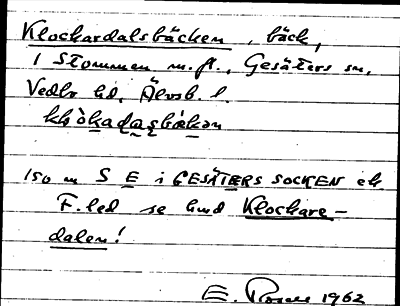 Klockardalsbäcken, bäck,
i Stommen m.fl., Gesäters sn,
Vedbo hd, Älvsb. l.
150 m S E i GESÄTERS SOCKEN ek
F. led se hmd Klockare-
dalen!
E. 1962